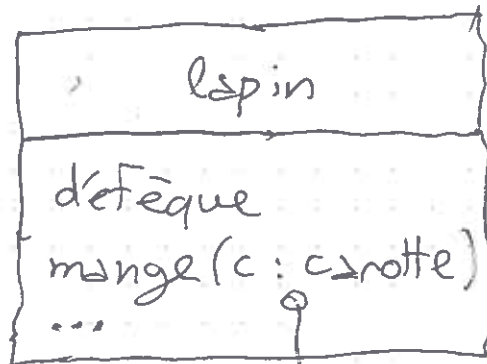 lapin
défèque
mange(c : carotte)
...